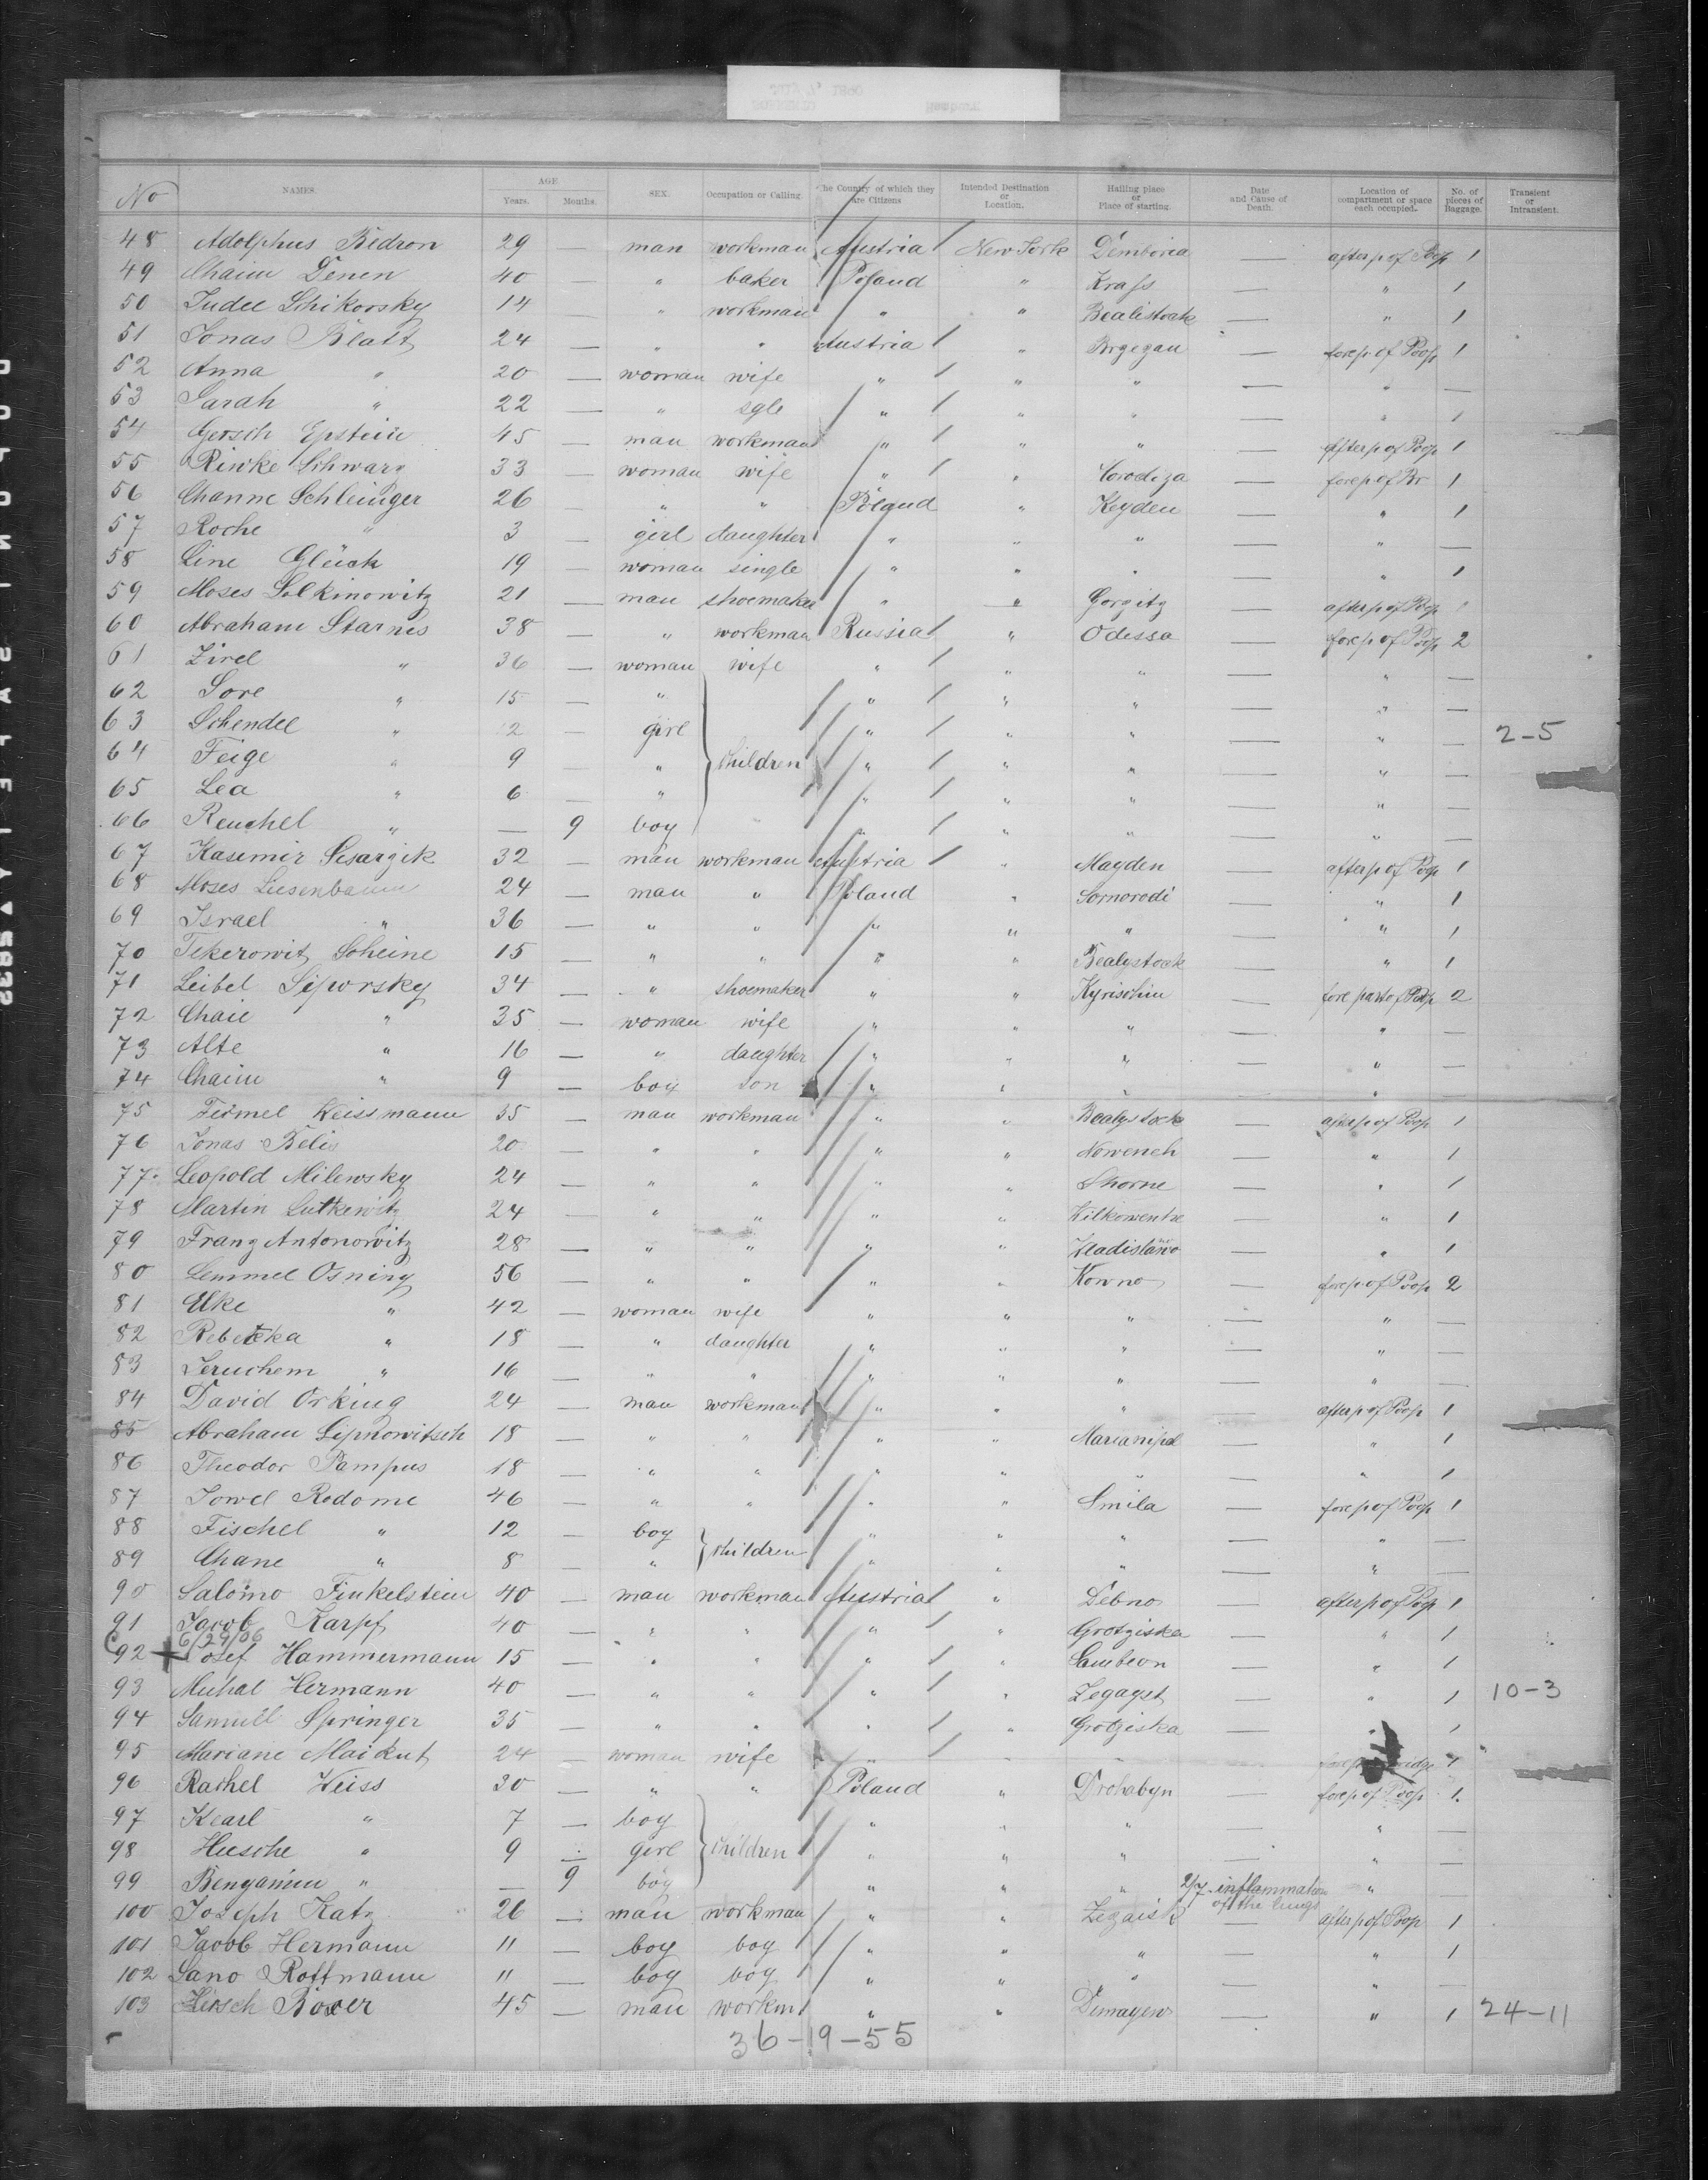 No NAMES. AGE. Years. Months. SEX. Occupation or Calling. The Country of which they are Citizens Intended Destination or Location. Hailing place or Place of starting. Date and Cause of Death. Location of compartment or space each occupied. No. of pieces of Baggage. Transient or Intransient.
48 Adolphus Bedron 29 — man workman Austria / New York Dembirea — after p of Poop 1
49 Chaim Denen 40 — " baker Poland " Krass — " 1
50 Judel Schikorsky 14 — " workman " " Bealistock — " 1
51 Jonas Blatt 24 — " " Austria / " Brzezau — fore p. of Poop 1
52 Anna " 20 — woman wife " / " " — " —
53 Sarah " 22 — " sgle " / " " — " 1
54 Gersch Epstein 45 — man workman " / " " — after p of Poop 1
55 Riwke Schwarz 33 — woman wife " / " Horodiza — fore p of Br 1
56 Channe Schleinger 26 — " " Poland " Keyden — " 1
57 Roche " 3 — girl daughter " " " — " —
58 Line Glück 19 — woman single " " " — " 1
59 Moses Solkinowitz 21 — man shoemaker " " Gorzitz — after p of Poop 1
60 Abraham Starnes 38 — " workman Russia / " Odessa — fore p of Poop 2
61 Zirel " 36 — woman wife " / " " — " —
62 Sore " 15 — " " / " " — " —
63 Schendel " 2 — girl " / " " — " — 2-5
64 Feige " 9 — " children " / " " — " —
65 Lea " 6 — " " / " " — " —
66 Reuchel " — 9 boy " " / " " — " —
67 Kasemir Sesarzik 32 — man workman Austria / " Mayden — after p of Poop 1
68 Moses Liesenbaum 24 — man " Poland " Somorodi — " 1
69 Israel " 36 — " " " " " — " 1
70 Tekerowit Scheine 15 — " " " " Bealystock — " 1
71 Leibel Siporsky 34 — " shoemaker " " Kyrischin — fore part of Poop 2
72 Chaie " 35 — woman wife " " " — " —
73 Alte " 16 — " daughter " " " — " —
74 Chaim " 9 — boy son " " " — " —
75 Feimel Keissmann 35 — man workman " " Bealystock — after p of Poop 1
76 Jonas Belis 20 — " " " " Noweneh — " 1
77 Leopold Milewsky 24 — " " " " Shorne — " 1
78 Martin Lutkewitz 24 — " " " " Wilkowentze — " 1
79 Franz Antonowitz 28 — " " " " Wladislawo — " 1
80 Lemmel Osning 56 — " " " " Kowno — fore p of Poop 2
81 Elke " 42 — woman wife " " " — " —
82 Rebekka " 18 — " daughter " " " — " —
83 Jeruchem " 16 — " " " " " — " —
84 David Orking 24 — man workman " " " — after p of Poop 1
85 Abraham Lipnowitsch 18 — " " " " Marianipol — " 1
86 Theodor Pampus 18 — " " " " " — " 1
87 Jowel Redome 46 — " " " " Smila — fore p of Poop 1
88 Fischel " 12 — boy " " " — " —
89 Chane " 8 — " children " " " — " —
90 Salomo Finkelstein 40 — man workman Austria / " Debno — after p of Poop 1
91 Jacob Karpf 40 — " " " / " Grotziska — " 1
6/29/06
C92 + Josef Hammermann 15 — " " " / " Lambeon — " 1
93 Michal Hermann 40 — " " " / " Zegayst — " 1 10-3
94 Samuel Springer 35 — " " " / " Grotziska — " 1
95 Mariane Maikut 24 — woman wife " / " " — fore p. bridge 1
96 Rachel Weiss 30 — " " Poland " Drohabyn — fore p of Poop 1.
97 Kearl " 7 — boy " " " — " —
98 Huesche " 9 — girl children " " " — " —
99 Bengamin " — 9 boy " " " 2/7 inflammation of the lungs " —
100 Joseph Katz 26 — man workman " " Zegaisk — after p of Poop 1
101 Jacob Hermann 11 — boy boy " " " — " 1
102 Sano Rottmann 11 — boy boy " " " — " —
103 Hirsch Boxer 45 — man workm " " Demayew — " 1 24-11
36-19-55